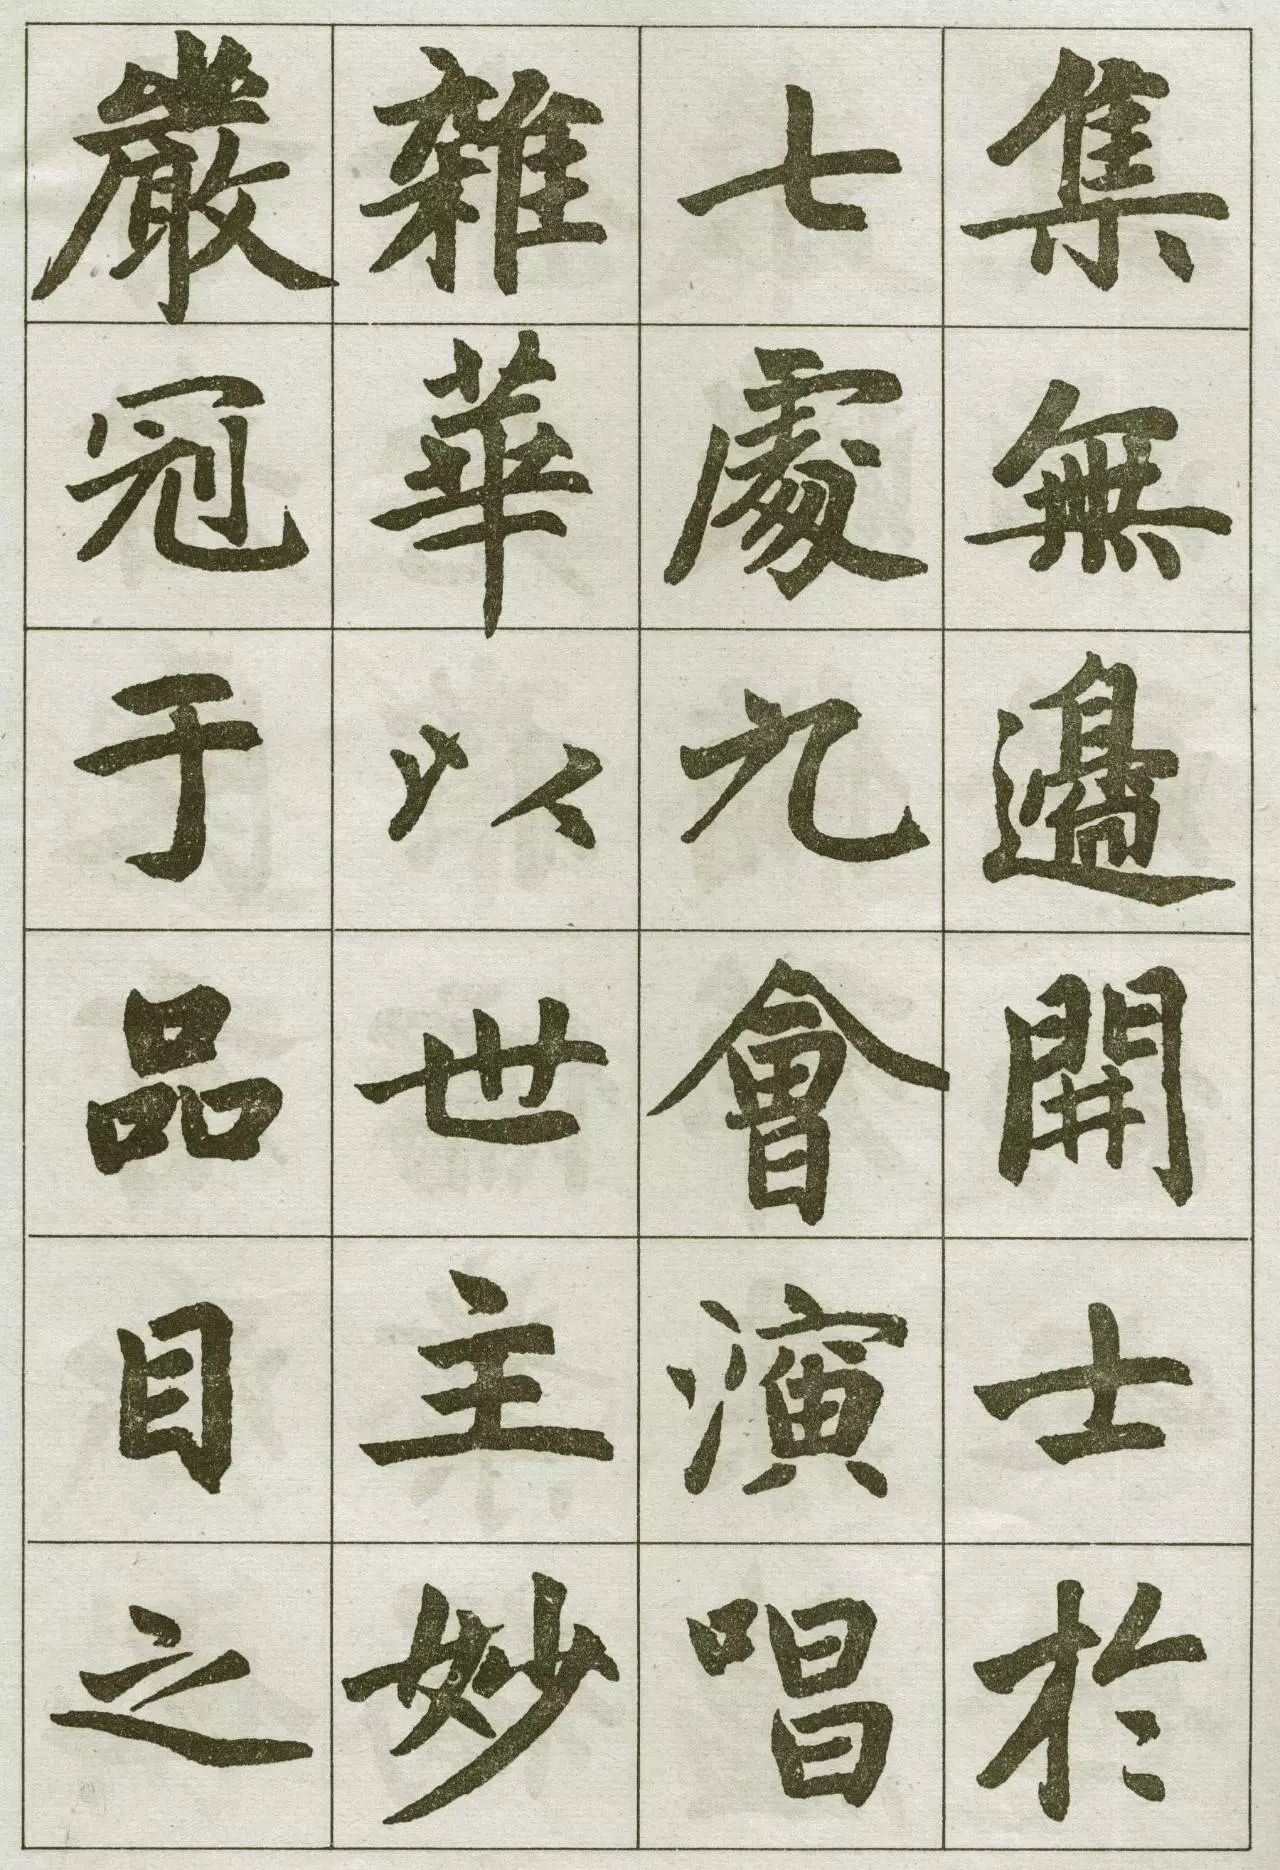 集無邊開士於
七處九會演唱
雜華以世主妙
嚴冠于品目之